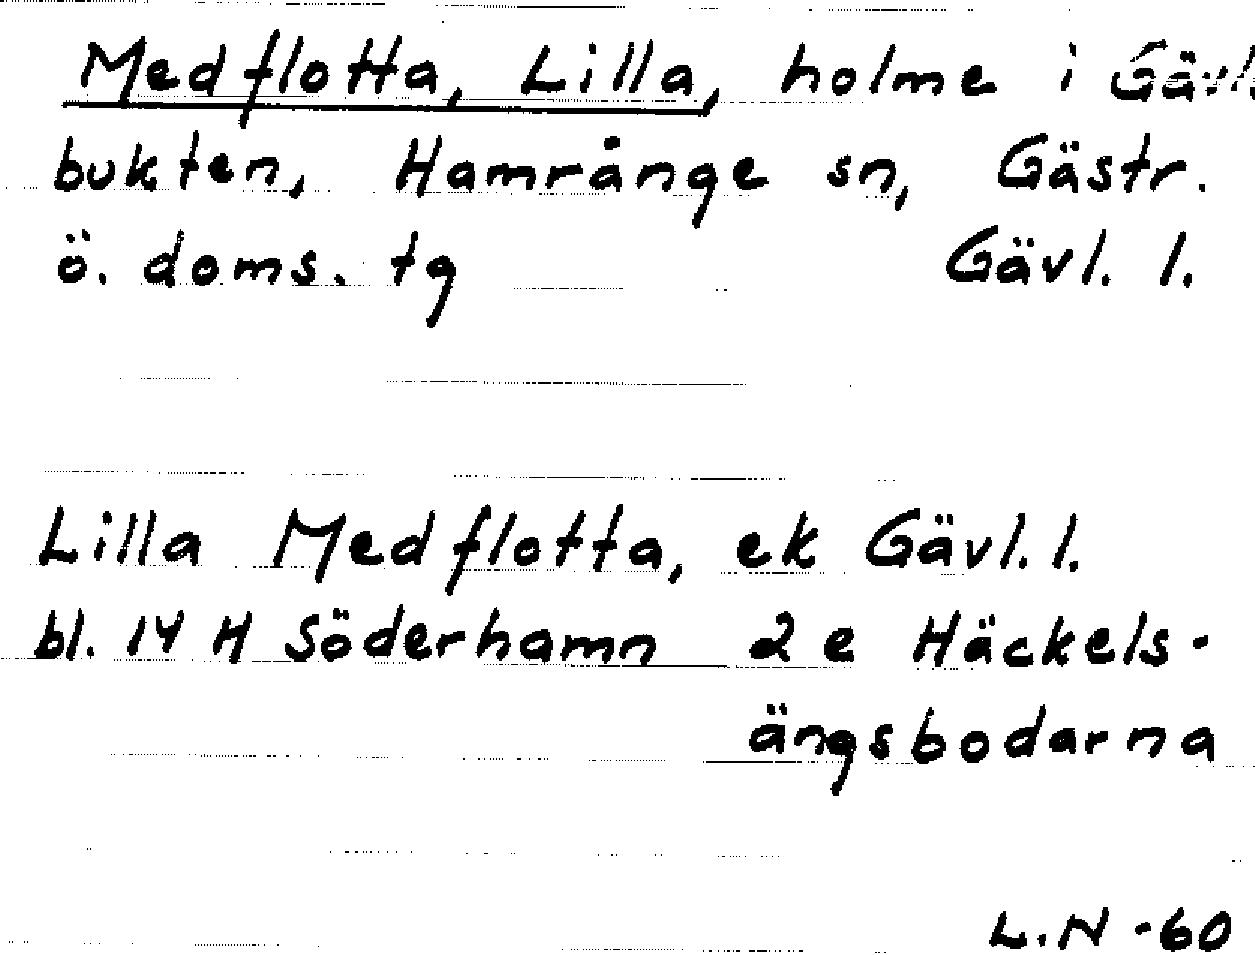 Medflotta, Lilla, holme i Gävle
bukten, Hamrånge sn, Gästr.
ö. doms. tg Gävl. l.
Lilla Medflotta, ek Gävl. l.
bl. 14 H Söderhamn 2 e Häckels-
ängsbodarna
L.N -60